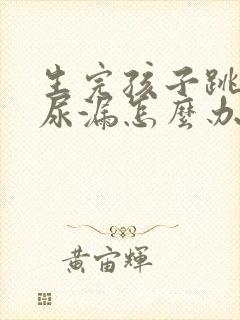 生完孩子跳
尿漏怎麼办
黄宙輝